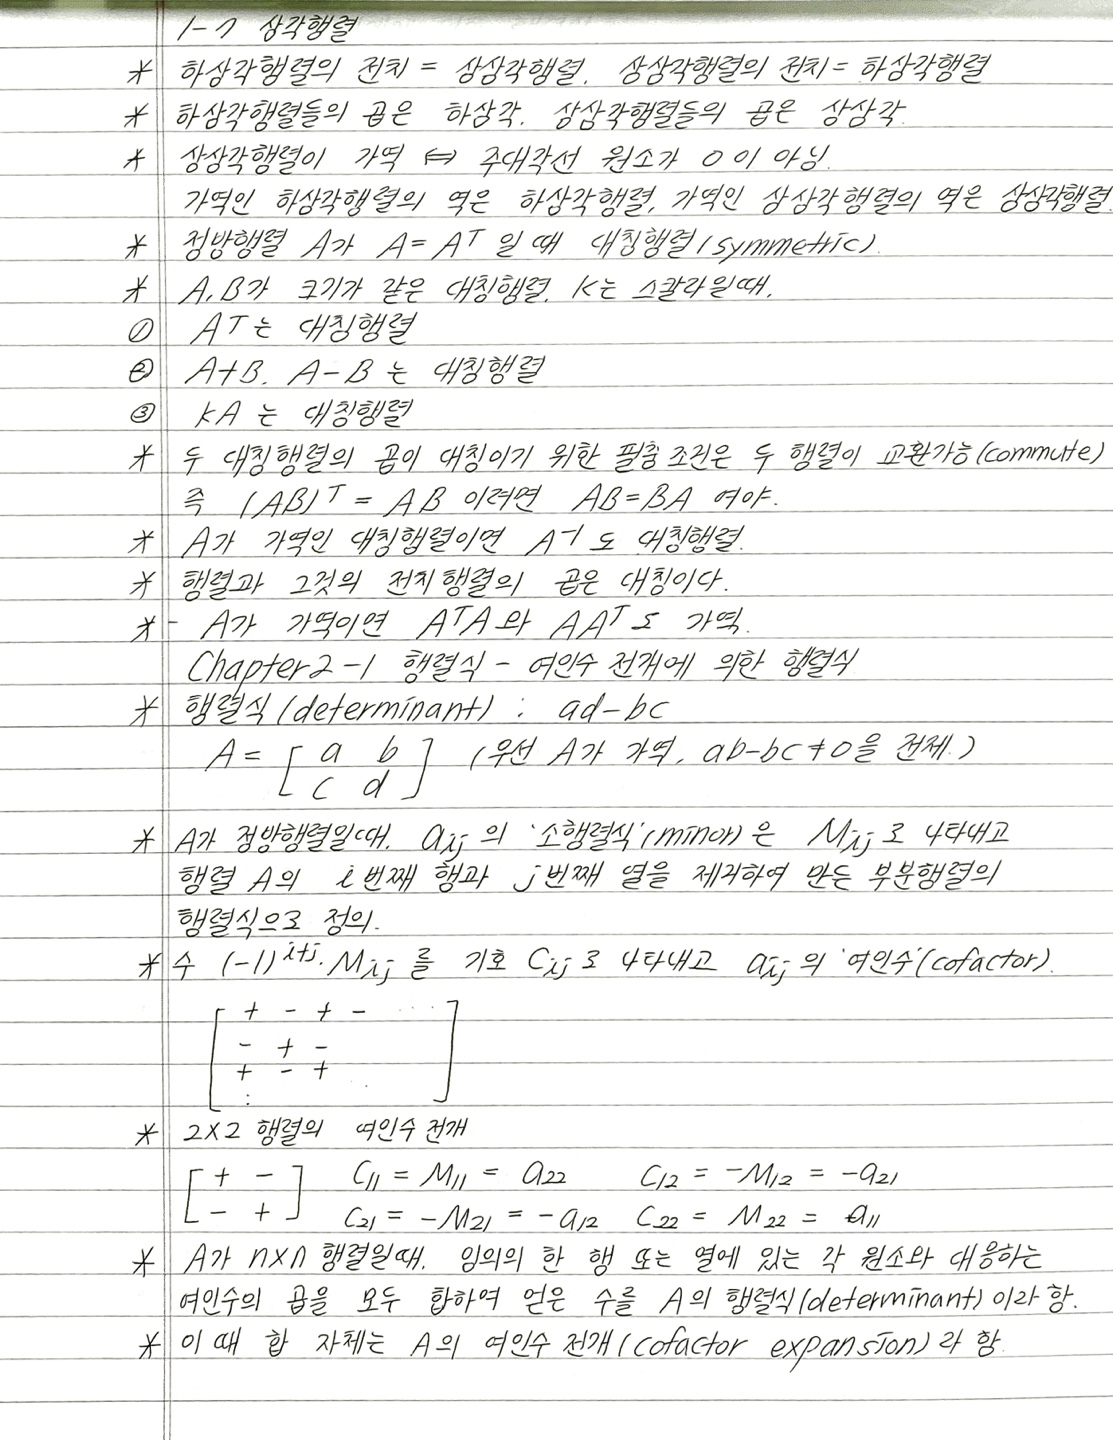 1-7 삼각행렬
* 하삼각행렬의 전치 = 상삼각행렬. 상삼각행렬의 전치 = 하삼각행렬
* 하삼각행렬들의 곱은 하삼각. 상삼각행렬들의 곱은 상삼각.
* 상삼각행렬이 가역 ⇔ 주대각선 원소가 0이 아님.
가역인 하삼각행렬의 역은 하삼각행렬, 가역인 상삼각행렬의 역은 상삼각행렬.
* 정방행렬 A가 A = Aᵀ 일 때 대칭행렬(symmetric).
* A, B가 크기가 같은 대칭행렬. K는 스칼라일때,
① Aᵀ는 대칭행렬
② A+B. A-B 는 대칭행렬
③ kA 는 대칭행렬
* 두 대칭행렬의 곱이 대칭이기 위한 필충조건은 두 행렬이 교환가능(commute)
즉 (AB)ᵀ = AB 이려면 AB=BA 여야.
* A가 가역인 대칭행렬이면 A⁻¹도 대칭행렬.
* 행렬과 그것의 전치행렬의 곱은 대칭이다.
* - A가 가역이면 AᵀA와 AAᵀ도 가역.
Chapter 2-1 행렬식 - 여인수 전개에 의한 행렬식
* 행렬식(determinant) : ad-bc
A = [ a b ] (우선 A가 가역, ab-bc≠0을 전제.)
[ c d ]
* A가 정방행렬일때, aij 의 '소행렬식'(minor)은 Mij로 나타내고
행렬 A의 i번째 행과 j번째 열을 제거하여 만든 부분행렬의
행렬식으로 정의.
* 수 (-1)^i+j · Mij 를 기호 Cij로 나타내고 aij의 '여인수'(cofactor).
[ + - + - ... ]
- + -
+ - +
:
* 2×2 행렬의 여인수 전개
[ + - ] C11 = M11 = a22 C12 = -M12 = -a21
[ - + ] C21 = -M21 = -a12 C22 = M22 = a11
* A가 n×n 행렬일때, 임의의 한 행 또는 열에 있는 각 원소와 대응하는
여인수의 곱을 모두 합하여 얻은 수를 A의 행렬식(determinant)이라 함.
* 이 때 합 자체는 A의 여인수 전개(cofactor expansion)라 함.